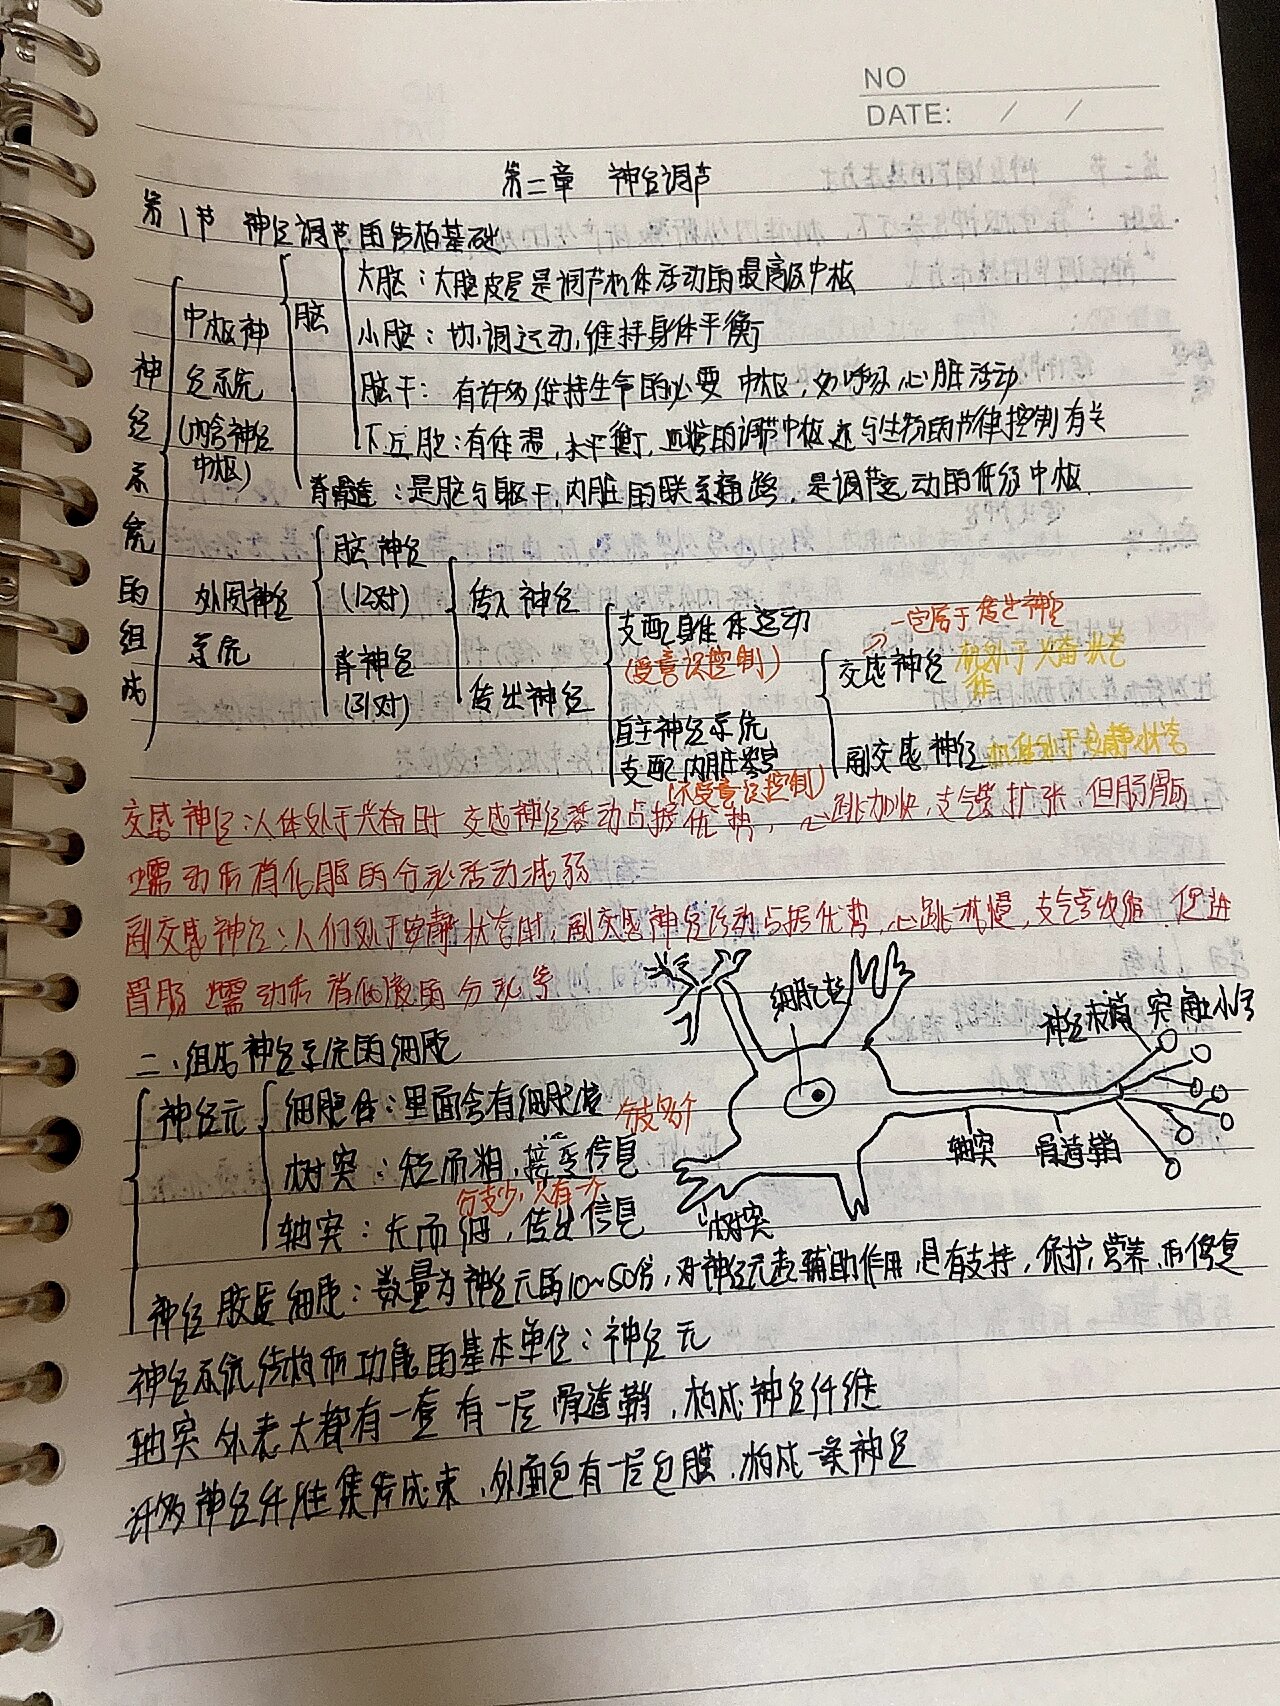 NO
DATE: / /
第二章 神经调节
第1节 神经调节的结构基础
神经系统的组成
中枢神经系统
(内含神经中枢)
脑
大脑：大脑皮层是调节机体活动的最高级中枢
小脑：协调运动,维持身体平衡
脑干：有许多维持生命的必要中枢,如呼吸,心脏活动
下丘脑：有体温,水平衡,血糖的调节中枢,还与生物的节律控制有关
脊髓：是脑与躯干,内脏的联系通路,是调节运动的低级中枢.
外周神经系统
脑神经
(12对)
脊神经
(31对)
传入神经
传出神经
支配身体运动
(受意识控制)
自主神经系统
支配内脏器官
(不受意识控制)
一定属于传出神经
交感神经 机体处于兴奋状态
副交感神经 机体处于安静状态
交感神经：人体处于兴奋时 交感神经活动占据优势，心跳加快,支气管扩张,但肠胃的
蠕动和消化腺的分泌活动减弱
副交感神经：人们处于安静状态时,副交感神经活动占据优势,心跳减慢,支气管收缩.促进
胃肠蠕动和消化液的分泌等
二、组成神经系统的细胞
神经元
细胞体：里面含有细胞核
分支多个
树突：短而粗,接受信息
分支少,只有一个
轴突：长而细,传出信息
细胞核
神经末梢 突触小体
轴突 骨髓鞘
树突
神经胶质细胞：数量为神经元的10~50倍,对神经元起辅助作用,具有支持,保护,营养,和修复
神经系统结构和功能的基本单位：神经元
轴突外表大都有一套有一层骨道鞘,构成神经纤维
许多神经纤维集结成束,外面包有一层包膜,构成一条神经